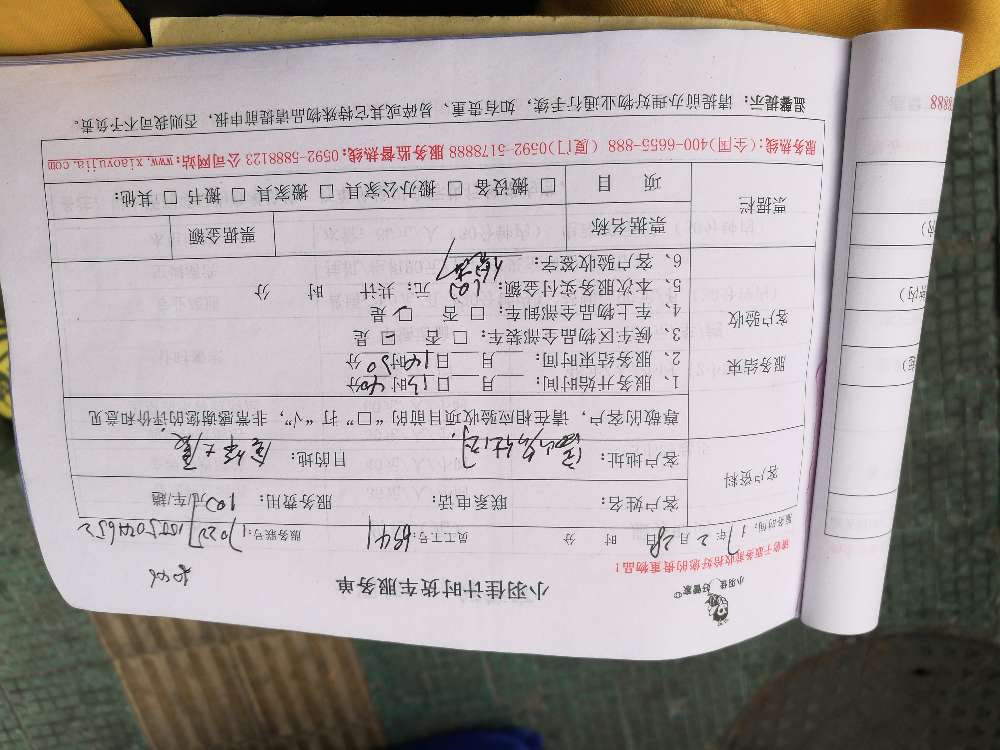 小羽佳 好管家
小羽佳计时货车服务单
请您于服务前收拾好您的贵重物品！
服务时间：17年2月28日 时 分 员工工号：6941 服务账号：
客户资料
客户姓名： 联系电话： 服务费用：100元/车/趟
客户地址： 目的地：
尊敬的客户，请在相应验收项目前的“□”打“√”，非常感谢您的评价和意见
服务结束 客户验收
1、服务开始时间： 月 日13时40分
2、服务结束时间： 月 日14时30分
3、候车区物品全部装车：□ 否 ☑ 是
4、车上物品全部卸车：□ 否 ☑ 是
5、本次服务实付金额：100元；共计 时 分
6、客户验收签字：
票据栏
票据名称 票据金额
项 目 □ 搬设备 □ 搬办公家具 □ 搬家具 □ 搬书 □ 其他：
服务热线：(全国)400-6655-888 (厦门)0592-5178888 服务监督热线：0592-5888123 公司网站：www.xiaoyujia.com
温馨提示：请提前办理好物业通行手续，如有贵重、易碎或其它特殊物品请提前申报，否则我司不予负责。